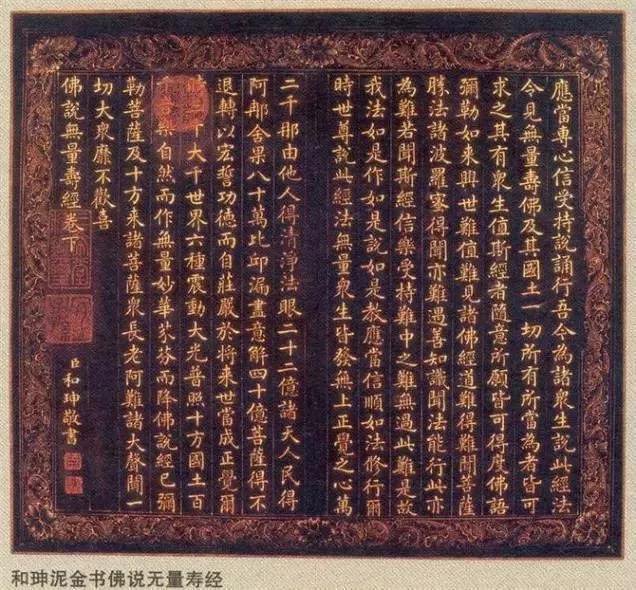 應當專心信受持說誦行吾今為諸衆生說此經法
令見無量壽佛及其國土一切所有所當為者皆可
求之其有衆生值斯經者隨意所願皆可得度佛語
彌勒如来興世難值難見諸佛經道難得難聞菩薩
勝法諸波羅宻得聞亦難遇善知識聞法能行此亦
為難若聞斯經信樂受持難中之難無過此難是故
我法如是作如是說如是教應當信順如法修行爾
時世尊說此經法無量衆生皆發無上正覺之心萬
二千那由他人得清淨法眼二十二億諸天人民得
阿那含果八十萬比邱漏盡意解四十億菩薩得不
退轉以宏誓功德而自莊嚴於将来世當成正覺爾
大千世界六種震動大光普照十方國土百
樂自然而作無量妙華芬芬而降佛說經已彌
勒菩薩及十方来諸菩薩衆長老阿難諸大聲聞一
切大衆靡不歡喜
佛說無量壽經卷下
臣和珅敬書
和珅泥金书佛说无量寿经